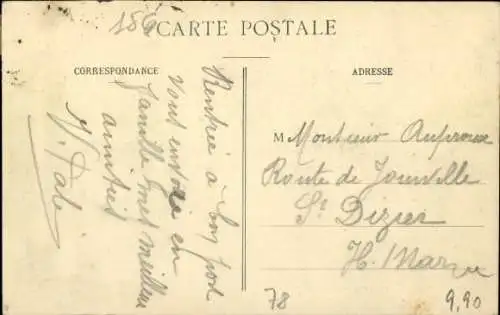 156
CARTE POSTALE
CORRESPONDANCE
ADRESSE
Rentrée à bon port
vous envoie en
famille mes meilleures
amitiés
M Monsieur
Route de Joinville
St Dizier
H. Marne
78
9,90